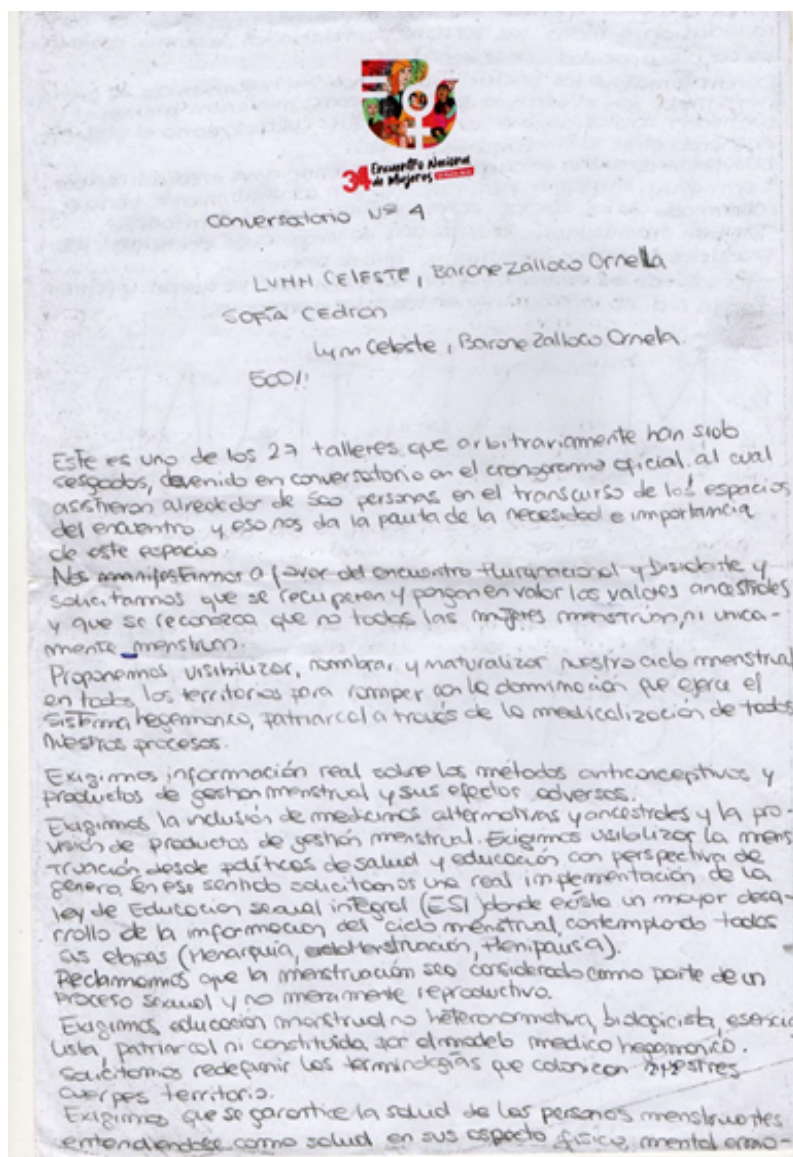 34 Encuentro Nacional
de Mujeres
Conversatorio Nº 4
LYNN CELESTE, Barone Zalloco Ornella
SOFÍA CEDRON
Lynn Celeste, Barone Zalloco Ornela.
500//
Este es uno de los 27 talleres que arbitrariamente han sido
sesgados, devenido en conversatorio en el cronograma oficial. al cual
asistieron alrededor de 500 personas en el transcurso de los espacios
del encuentro y eso nos da la pauta de la necesidad e importancia
de este espacio.
Nos manifestamos a favor del encuentro plurinacional y disidente y
solicitamos que se recuperen y pongan en valor los valores ancestrales
y que se reconozca que no todas las mujeres menstruan, ni unica-
mente menstruan.
Proponemos visibilizar, nombrar, y naturalizar nuestro ciclo menstrual
en todos los territorios para romper con la dominación que ejerce el
sistema hegemonico, patriarcal a través de la medicalización de todos
nuestros procesos.
Exigimos información real sobre los métodos anticonceptivos y
productos de gestion menstrual y sus efectos adversos.
Exigimos la inclusión de medicinas alternativas y ancestrales y la pro-
visión de productos de gestión menstrual. Exigimos visibilizar la mens
truación desde políticas de salud y educación con perspectiva de
genero, en ese sentido solicitamos una real implementación de la
ley de Educacion sexual integral (ESI) donde exista un mayor desa-
rrollo de la informacion del ciclo menstrual, contemplando todas
sus etapas (Menarquia, Menstruación, Menipausia).
Reclamamos que la menstruación sea considerada como parte de un
proceso sexual y no meramente reproductivo.
Exigimos educación menstrual no heteronormativa, biologicista, esencia
lista, patriarcal ni constituida por el modelo medico hegemonico.
Solicitamos redefinir las terminologías que colonizan nuestres
cuerpes territorio.
Exigimos que se garantice la salud de las personas menstruantes
entendiendose como salud en sus aspecto fisico, mental emo-